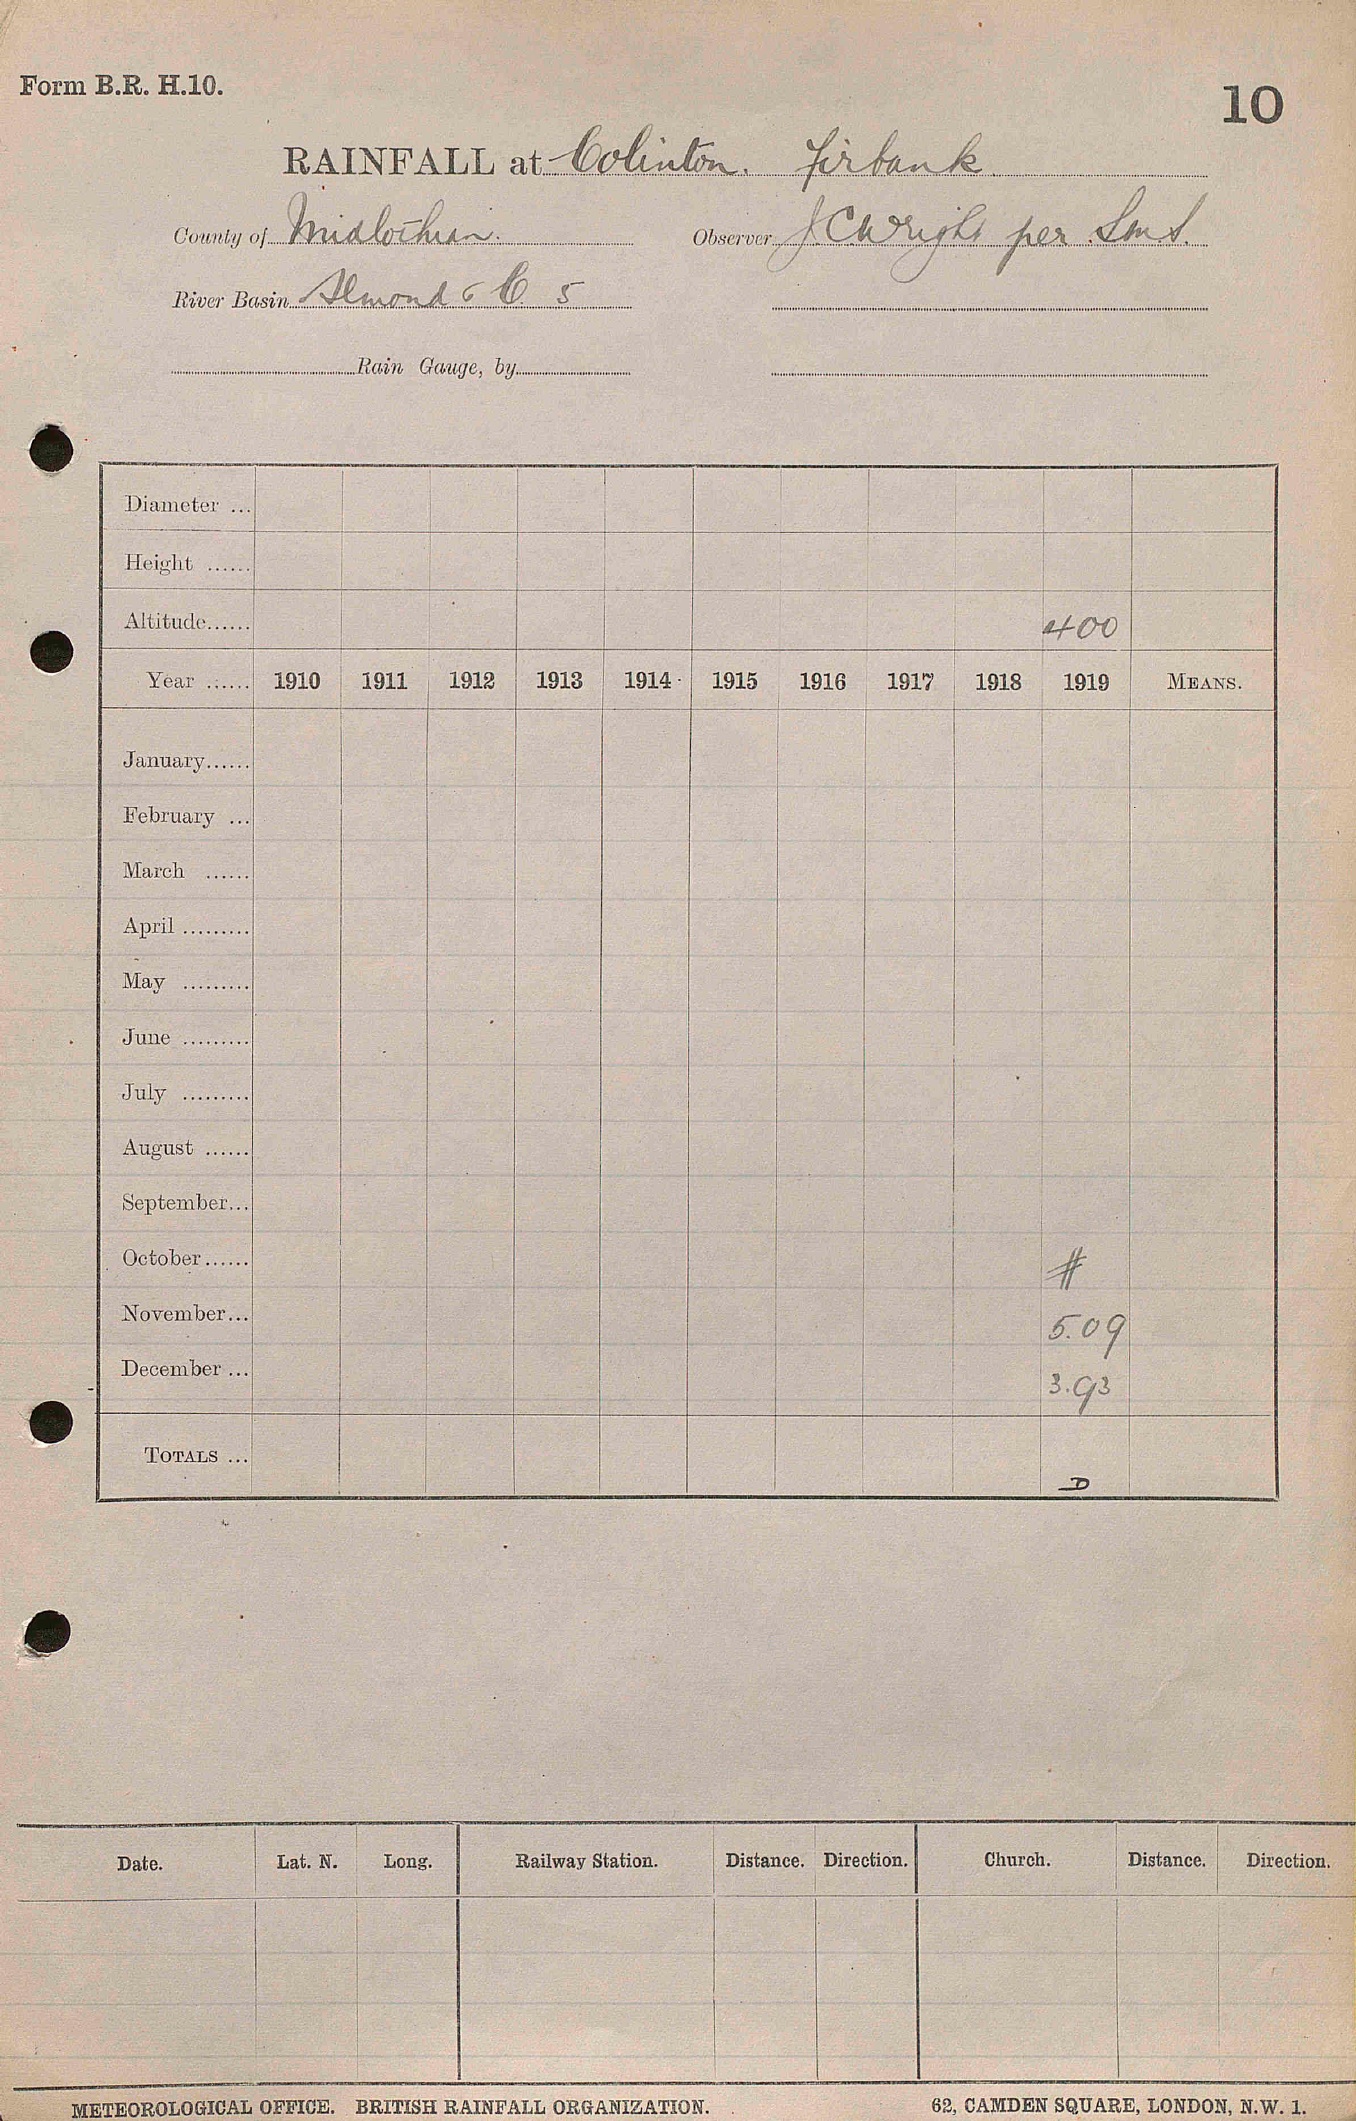 Form B.R. H.10.
10
RAINFALL at Colinton. Firbank
County of Midlothian. Observer J C Wright per S.m.S.
River Basin Almond & C. 5
Rain Gauge, by
Diameter ...
Height ......
Altitude...... 400
Year ...... 1910 1911 1912 1913 1914 1915 1916 1917 1918 1919 MEANS.
January......
February ...
March ......
April .........
May .........
June .........
July .........
August ......
September...
October...... #
November... 5.09
December ... 3.93
TOTALS ... D
Date. Lat. N. Long. Railway Station. Distance. Direction. Church. Distance. Direction.
METEOROLOGICAL OFFICE. BRITISH RAINFALL ORGANIZATION. 62, CAMDEN SQUARE, LONDON, N.W. 1.